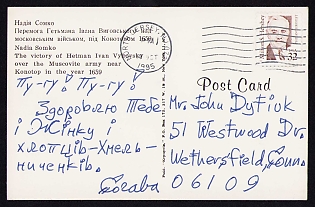 Надія Сомко
Перемога Гетьмана Івана Виговського над
московським військом, під Конотопом 1659
Nadia Somko
The victory of Hetman Ivan Vyhovsky
over the Muscovite army near
Konotop in the year 1659
1995
32
Post Card
Пу-гу! Пу-гу!
Здоровлю Тебе
і Жінку і
хлопців-Хмель-
ниченків.
Mr. John Dytiuk
51 Westwood Dr.
Wethersfield, Conn.
06109